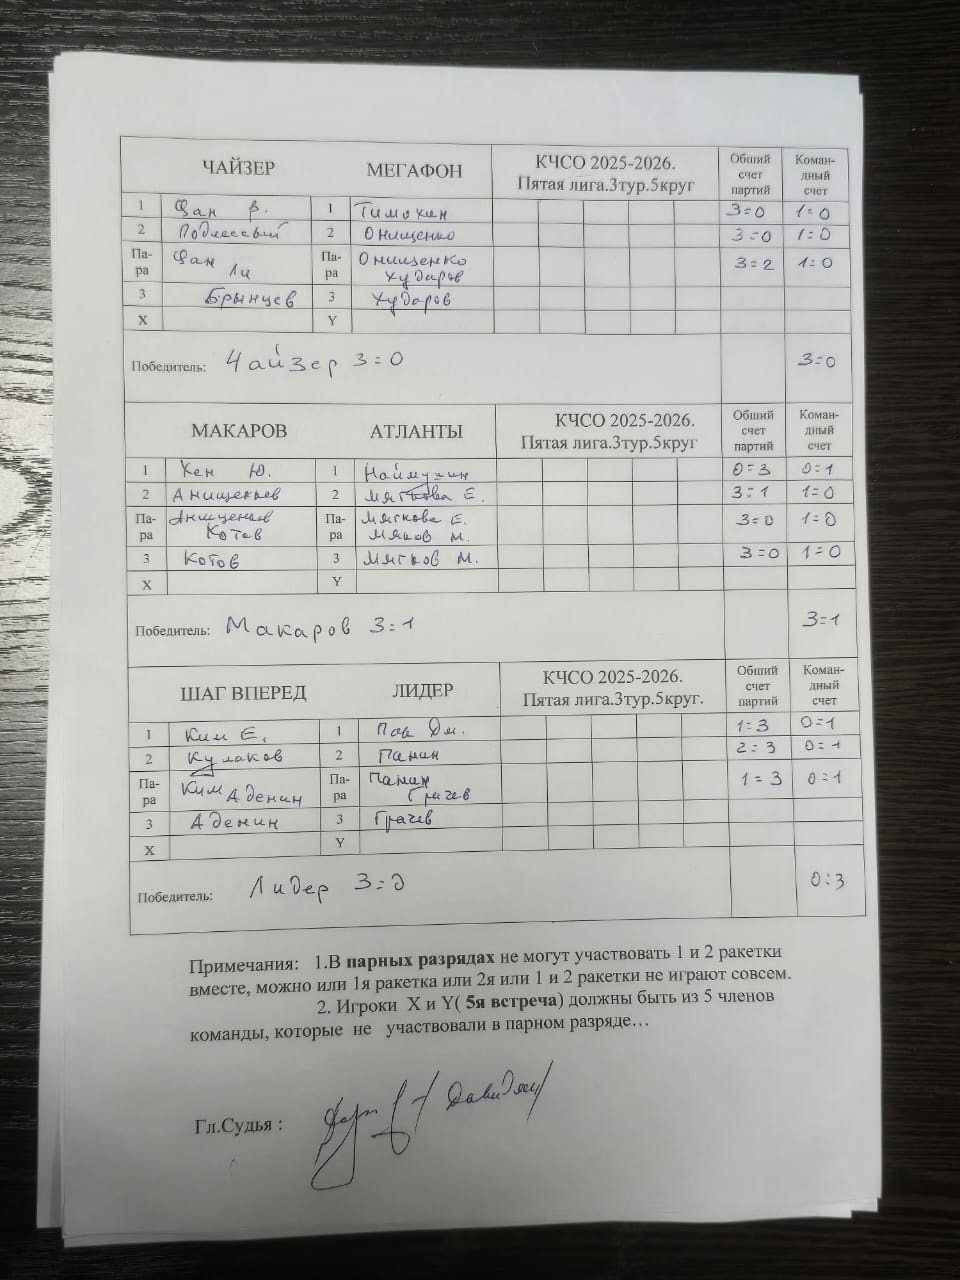 ЧАЙЗЕР МЕГАФОН КЧСО 2025-2026. Пятая лига.3тур.5круг Общий счет партий Коман-дный счет
1 Цан В. 1 Тимохин 3=0 1=0
2 Подлесный 2 Онищенко 3=0 1=0
Па-ра Цан Ли Па-ра Онищенко Хударов 3=2 1=0
3 Брынцев 3 Хударов
X Y
Победитель: Чайзер 3=0 3=0
МАКАРОВ АТЛАНТЫ КЧСО 2025-2026. Пятая лига.3тур.5круг Общий счет партий Коман-дный счет
1 Хен Ю. 1 Наймушин 0=3 0=1
2 2 Мягкова Е. 3=1 1=0
Па-ра Котов Па-ра Мягкова Е. М. 3=0 1=0
3 Котов 3 Мягков М. 3=0 1=0
X Y
Победитель: Макаров 3=1 3=1
ШАГ ВПЕРЕД ЛИДЕР КЧСО 2025-2026. Пятая лига.3тур.5круг. Общий счет партий Коман-дный счет
1 Ким Е. 1 Пак Дм. 1=3 0=1
2 Кулаков 2 Панин 2=3 0=1
Па-ра Ким Аденин Па-ра Панин Грачев 1=3 0=1
3 Аденин 3 Грачев
X Y
Победитель: Лидер 3=0 0:3
Примечания: 1.В парных разрядах не могут участвовать 1 и 2 ракетки
вместе, можно или 1я ракетка или 2я или 1 и 2 ракетки не играют совсем.
2. Игроки X и Y( 5я встреча) должны быть из 5 членов
команды, которые не участвовали в парном разряде…
Гл.Судья :